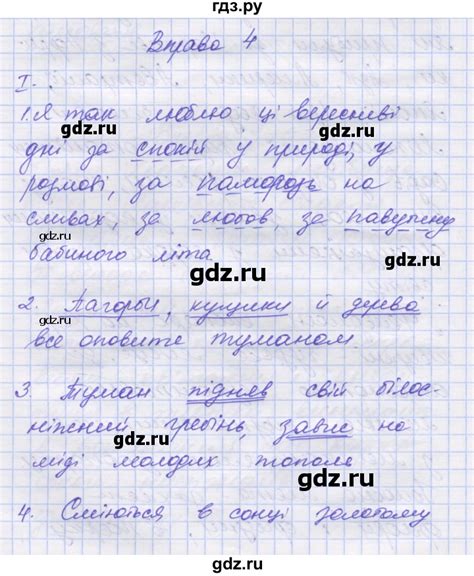 гдз.ру
Вправа 4
I.
1. Я так люблю ці вересневі
gdz.ru
gdz.ru
дні за спокій у природі, у
розмові, за паморозь на
gdz.ru
сливах, за любов, за павутину
gdz.ru
бабиного літа
gdz.ru
2. Пагорби, кущики й дерева
gdz.ru
gdz.ru
все оповите туманом.
gdz.ru
3. Туман підняв свій білос-
ніжний гребінь, завис на
gdz.ru
gdz.ru
міді молодих тополь
gdz.ru
4. Сміються в сонці золотому
gdz.ru
gdz.ru